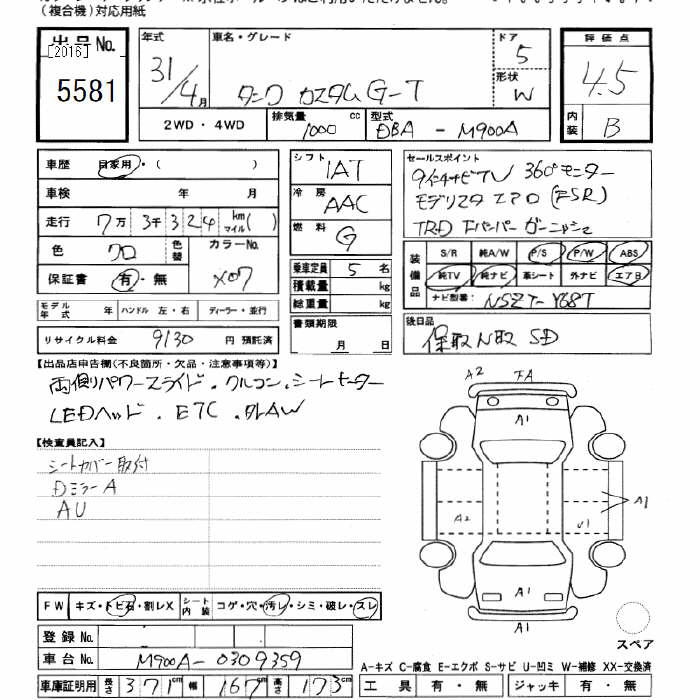 (複合機)対応用紙
出品No.
[2016]
5581
年式
31/4月
車名・グレード
タンク カスタム G-T
ドア
5
形状
W
評価点
4.5
内装
B
2WD・4WD
排気量
1000
cc
型式
DBA - M900A
車歴
自家用・( )
車検 年 月
走行 7万 3千 3 2 4 km マイル( )
色 クロ 色替 カラーNo.
X07
保証書 有・無
モデル年式 年 ハンドル 左・右 ディーラー・並行
リサイクル料金 9130 円 預託済
シフト
IAT
冷房
AAC
燃料
G
乗車定員 5 名
積載量 kg
総重量 kg
書類期限
月 日
セールスポイント
9インチナビTV 360°モニター
モデリスタエアロ(FSR)
TRD Fバンパーガーニッシュ
装備品
S/R 純A/W P/S P/W ABS
純TV 純ナビ 革シート 外ナビ エアB
ナビ型番: NSZT-Y68T
後日品
保取 N取 SD
【出品店申告欄(不良箇所・欠品・注意事項等)】
両側パワースライド.クルコン.シートヒーター
LEDヘッド.ETC.外AW
【検査員記入】
シートカバー取付
DミラーA
AU
A2 FA
A1
A2 U1 A1
A1
A1
スペア
FW キズ・トビ石・割レX シート内装 コゲ・穴・汚レ・シミ・破レ・スレ
登録No.
車台No. M900A-0309359
車庫証明用 長さ 371cm 幅 167cm 高さ 173cm
A-キズ C-腐食 E-エクボ S-サビ U-凹ミ W-補修 XX-交換済
工具 有・無 ジャッキ 有・無